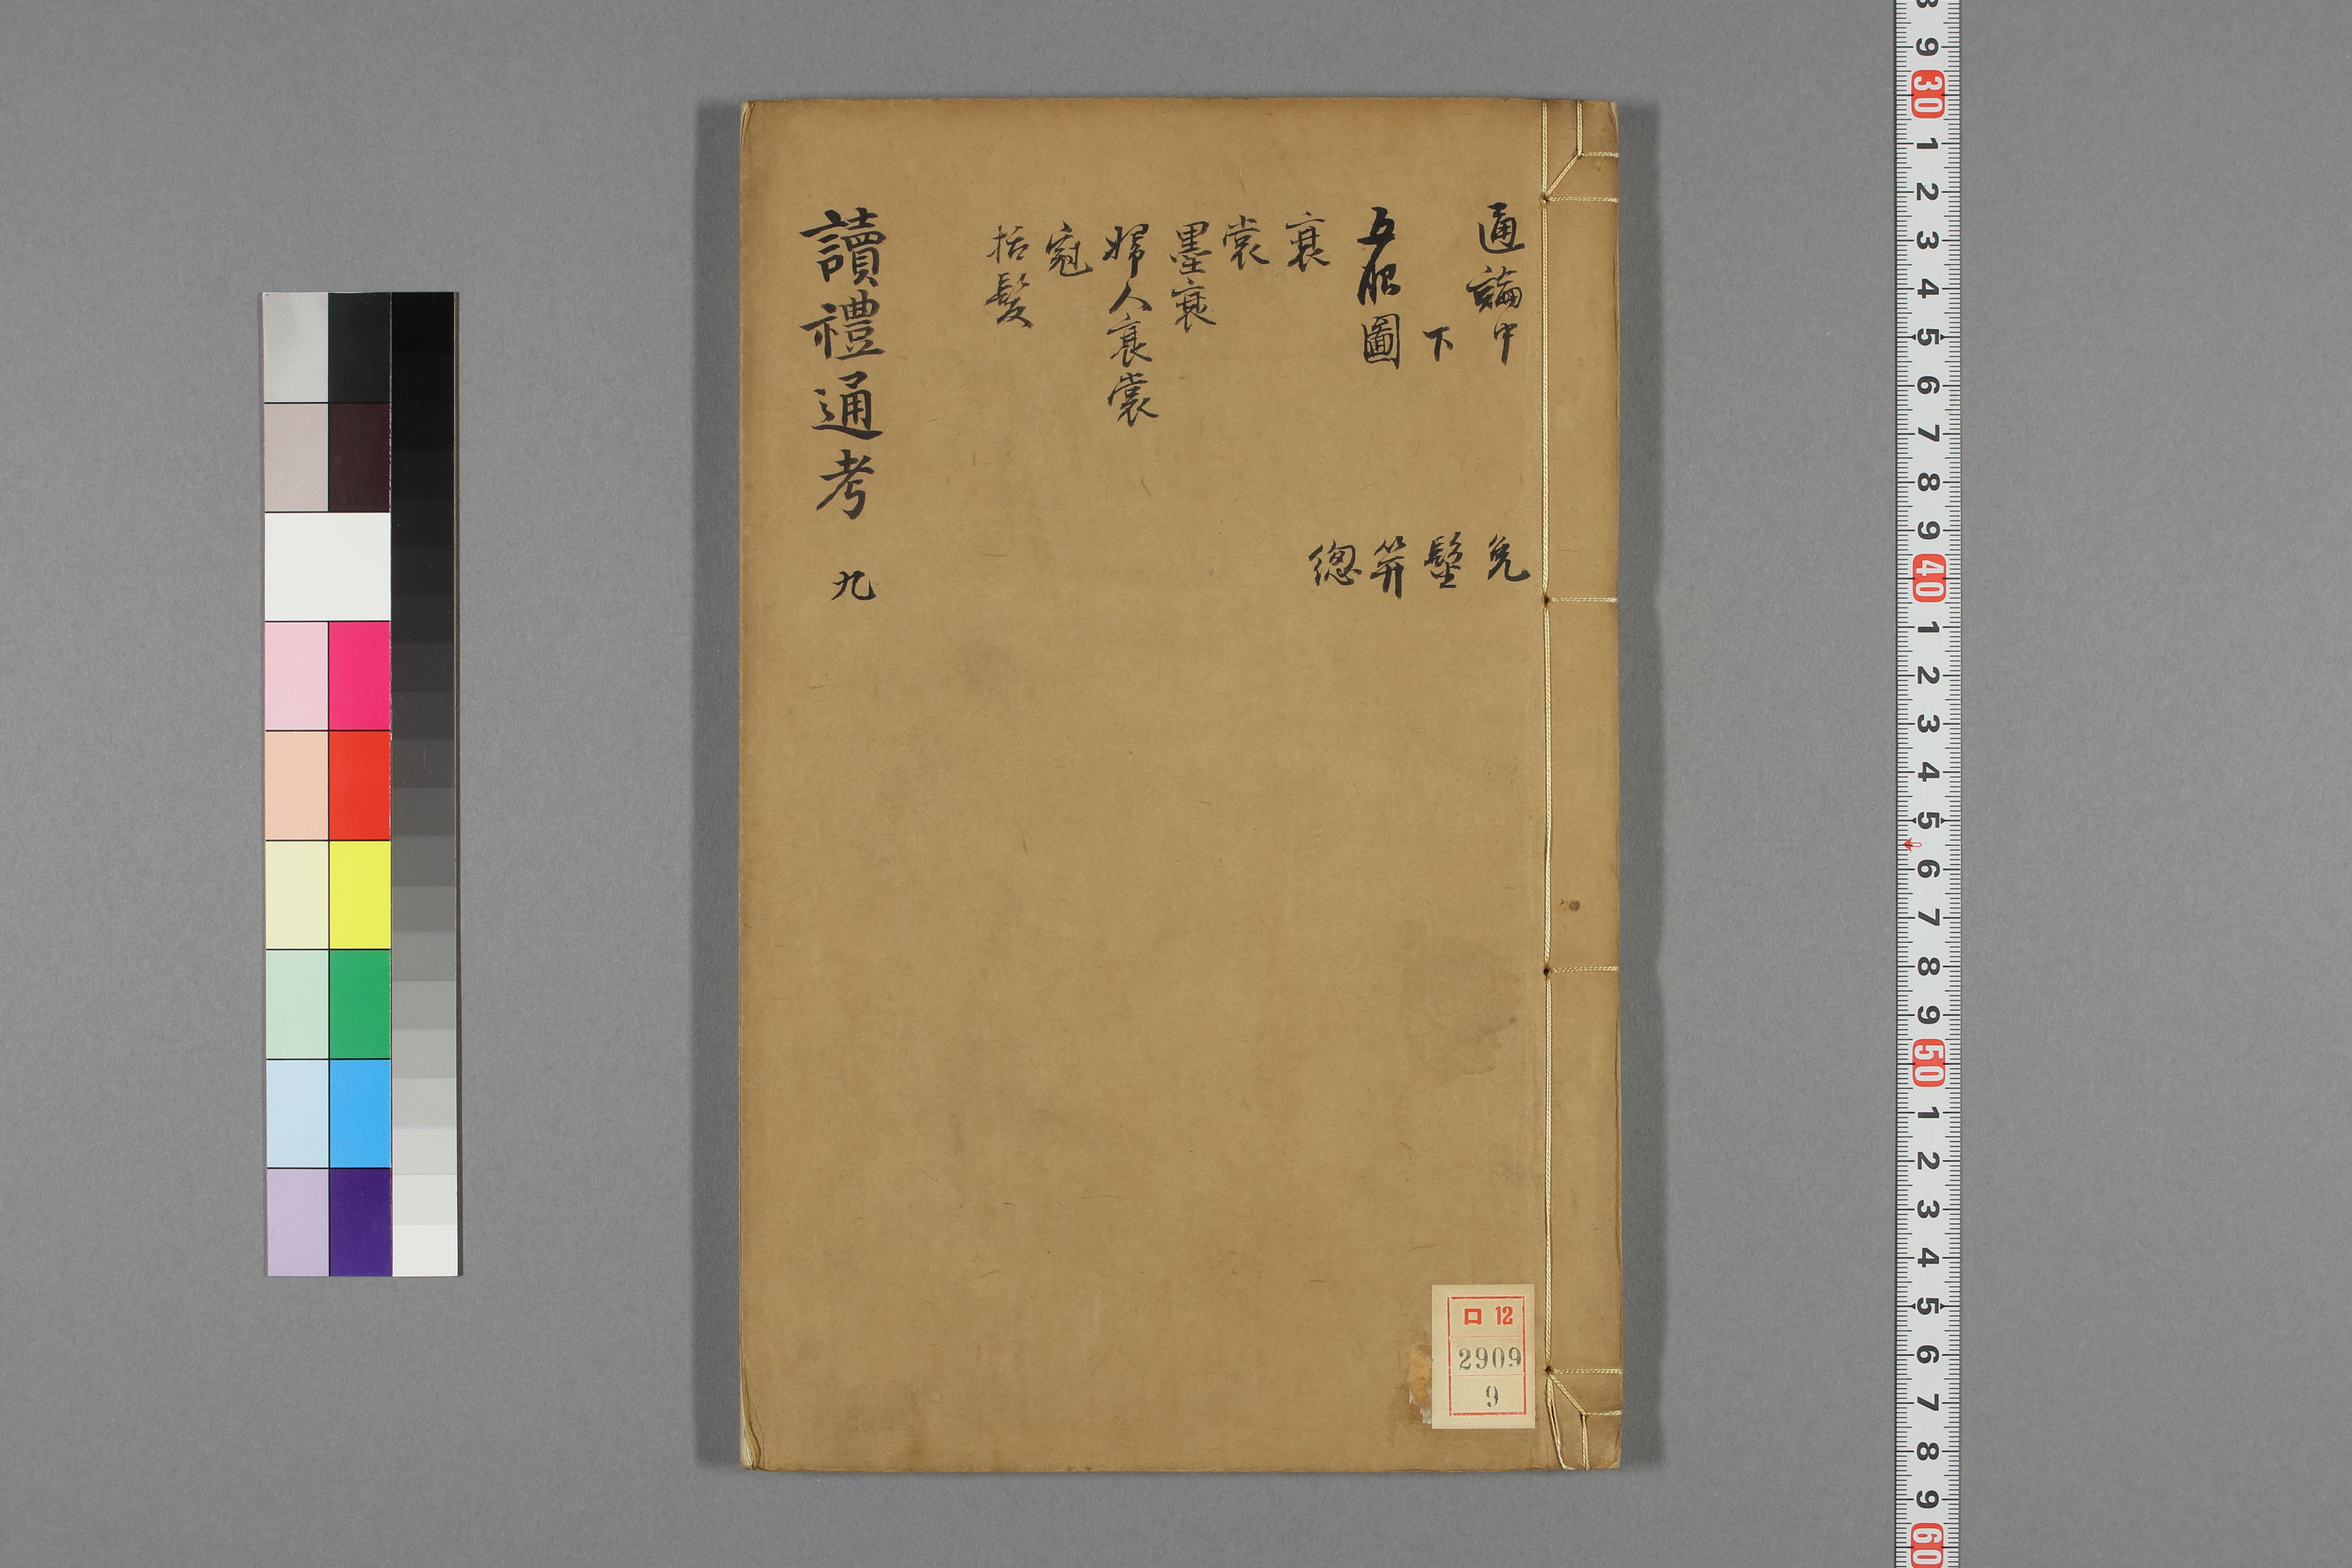 通論中
下
五服圖
衰
裳
墨衰
婦人衰裳
冠
括髮
免
髽
笄
總
讀禮通考 九
ロ 12
2909
9
9
30
1
2
3
4
5
6
7
8
9
40
1
2
3
4
5
6
7
8
9
50
1
2
3
4
5
6
7
8
9
60